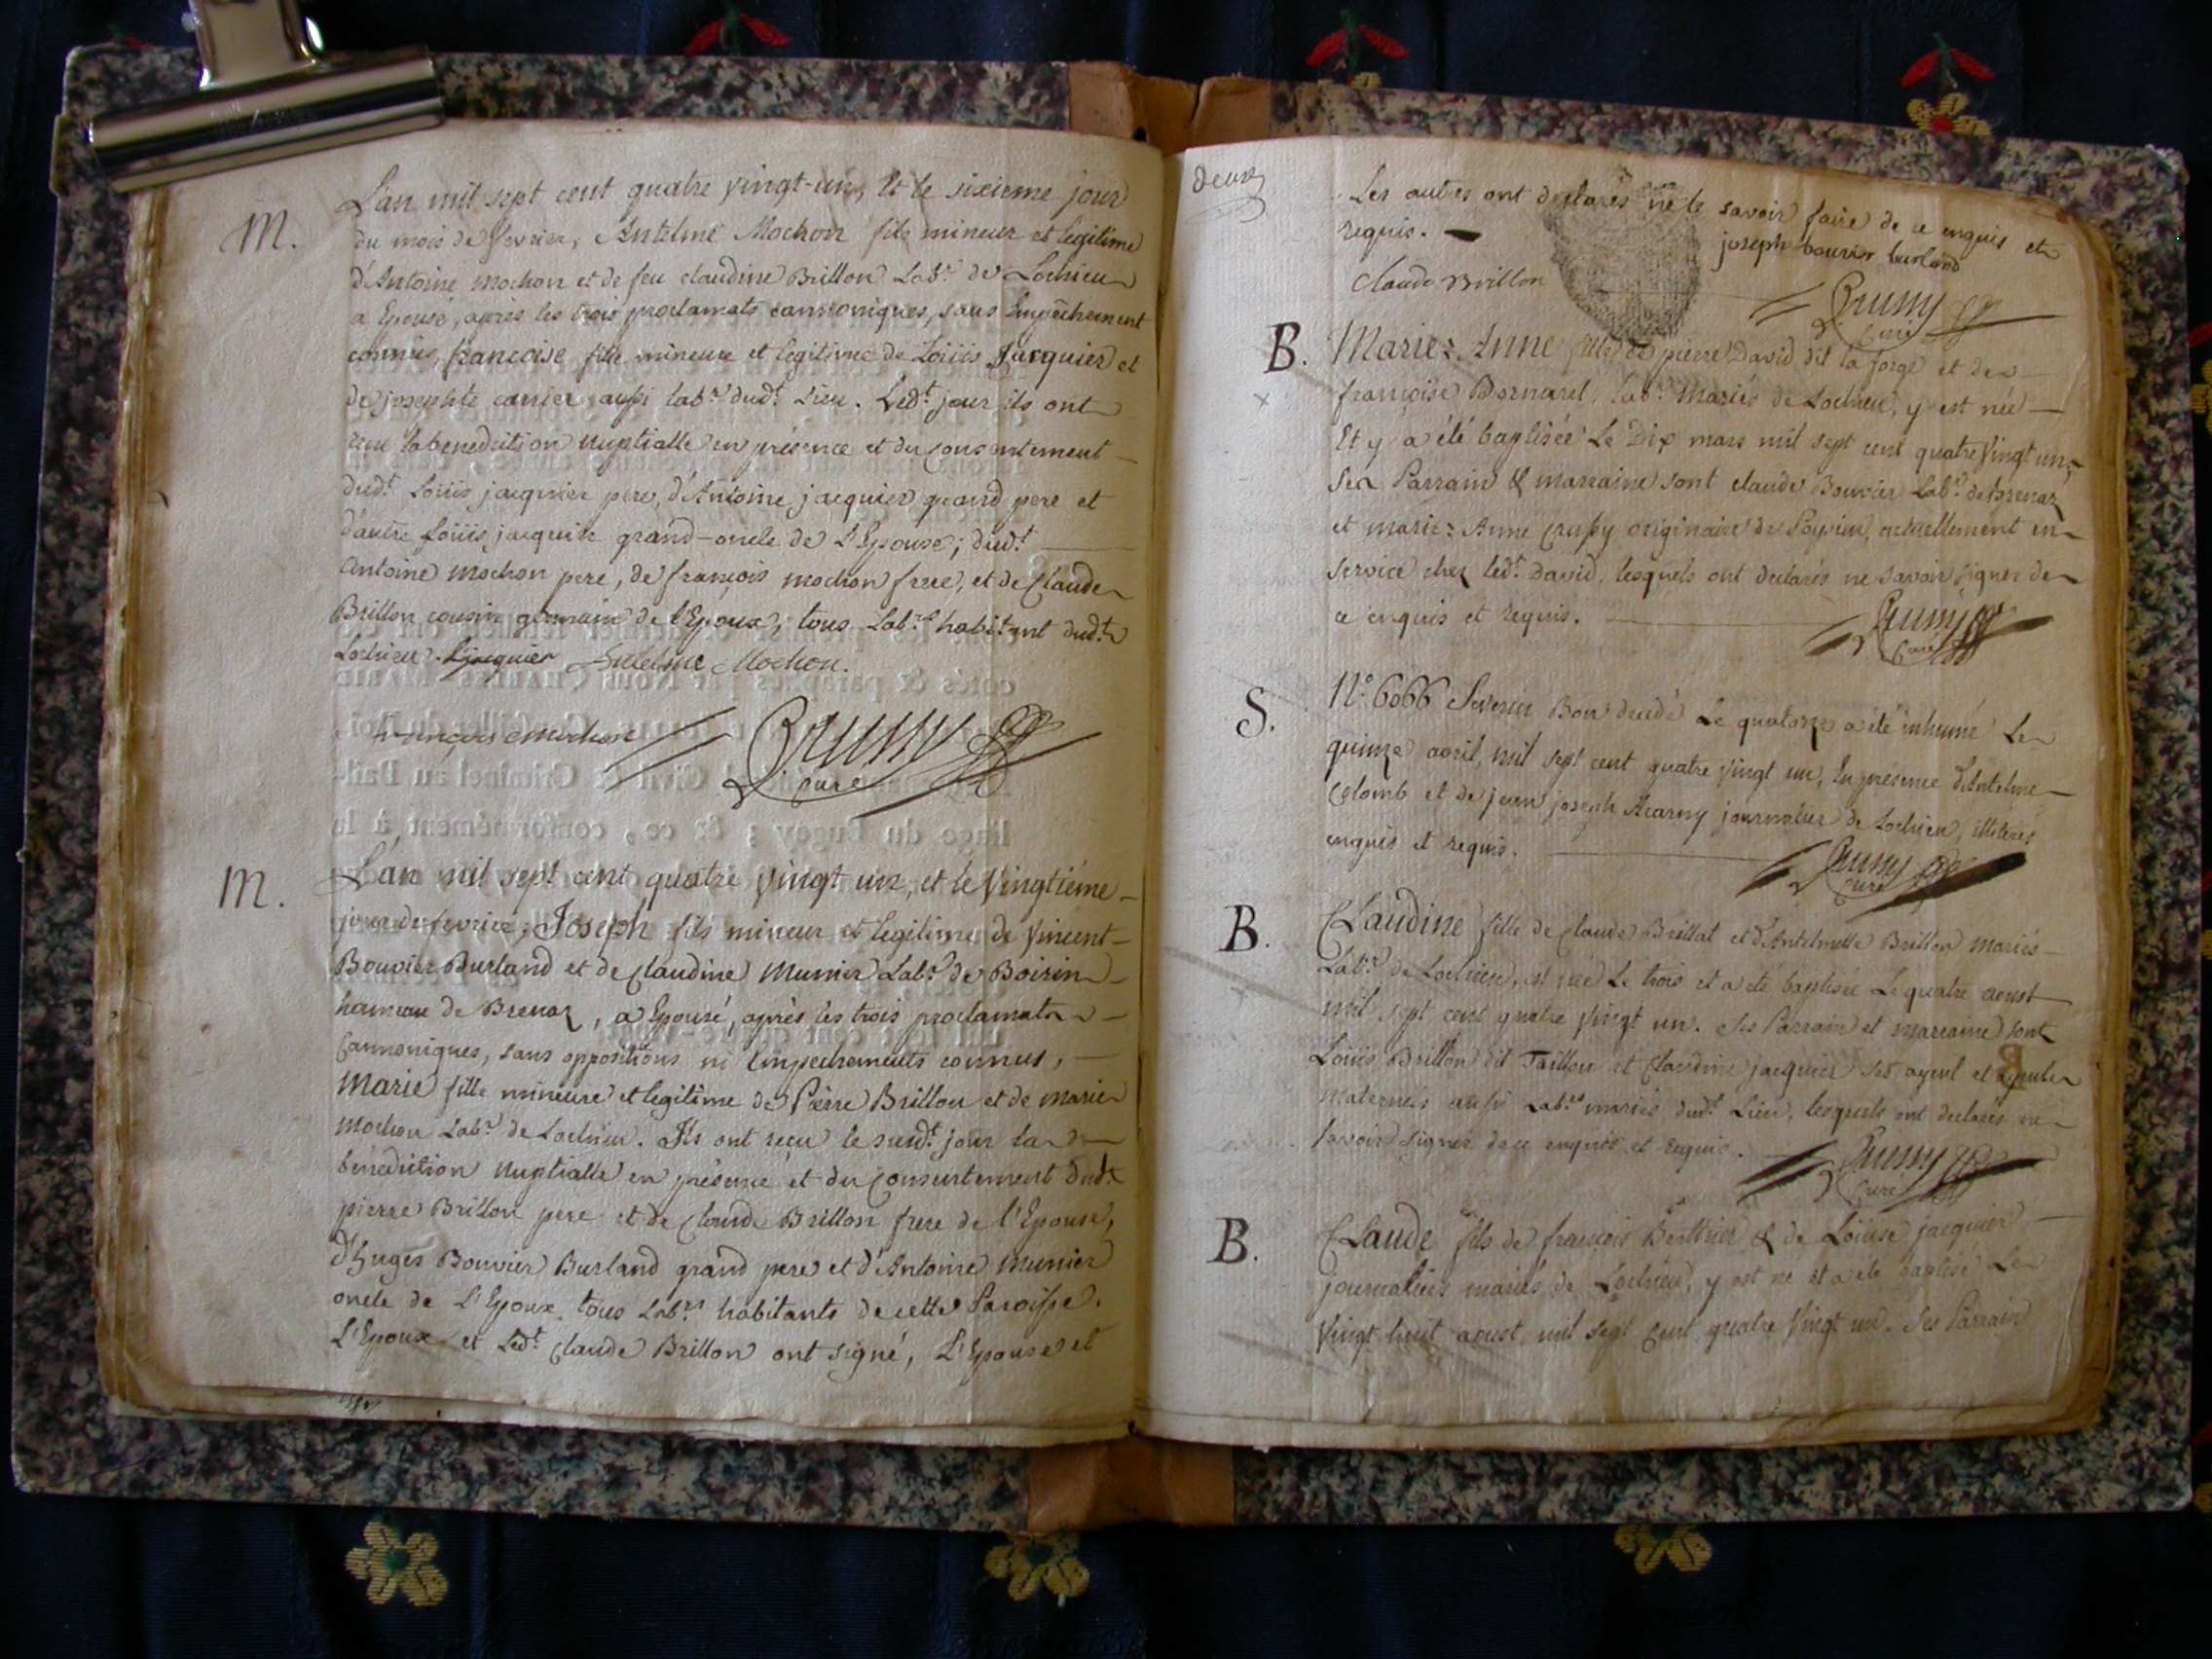 M.
L'an mil sept cent quatre vingt-un, et le sixieme jour
du mois de fevrier, Antelme Mochon fils mineur et legitime
d'Antoine mochon et de feu claudine Brillon Lab.r de Lochieu
a Epousé, après les trois proclamats cannoniques, sans Empêchement
connus, françoise fille mineure et legitime de Loüis Jacquier et
de josephte carrier aussi lab.rs dud.t Lieu. Led.t jour ils ont
reçu la benediction Nuptialle en présence et du consentement
dud.t Loüis jacquier pere, d'Antoine jacquier grand pere et
d'autre Loüis jacquier grand-oncle de L'Epouse; dud.t
Antoine Mochon pere, de françois mochon frere, et de Claude
Brillon cousin germain de l'Epoux; tous Lab.rs habitant dud.t
Lochieu. Ljacquier Antelme Mochon.
françois Mochon
Crussy
Curé
M.
L'an mil sept cent quatre vingt un, et le Vingtiéme
jour de fevrier, Joseph fils mineur et legitime de Vincent
Bouvier Burland et de Claudine Munier Lab.rs de Boirin
hameau de Brenaz, a Epousé, après les trois proclamats
Cannoniques, sans oppositions ni Empechements connus,
Marie fille mineure et legitime de Pierre Brillon et de marie
Mochon Lab.rs de Lochieu. Ils ont reçu le susd.t jour la
bénédiction Nuptialle en présence et du consentement dud.t
pierre Brillon pere et de Claude Brillon frere de l'Epouse,
d'huges Bouvier Burland grand pere et d'Antoine Munier
oncle de L'Epoux, tous Lab.rs habitants de cette Paroisse.
L'Epoux et Led.t Claude Brillon ont signé, L'Epouse et
deux
Les autres ont declarés ne le savoir faire de ce enquis et
requis.
joseph bouvier burland
Claude Brillon
Crussy
Curé
B.
Marie-Anne fille de pierre David dit la forge et de
françoise Bornarel, lab.rs Mariés de Lochieu, y est née
Et y a été baptisée Le Dix mars mil sept cent quatre Vingt un
Ses Parrain & marraine sont claude Bouvier Lab.r de Brenaz
et marie-Anne Crussy originaire de Poyrieu, actuellement en
service chez led.t David, lesquels ont declarés ne savoir signer de
ce enquis et requis.
Crussy
Curé
S.
N.o 6066 Severin Bon decedé Le quatorze a été inhumé Le
quinze avril, mil sept cent quatre vingt un, En présence d'Antelme
Colomb et de jean joseph Acarny journalier de Lochieu, illiterés
enquis et requis.
Crussy
Curé
B.
Claudine fille de Claude Brillat et d'Antelmette Brillon mariés
Lab.rs de Lochieu, est née Le trois et a été baptisée Le quatre aoust
mil sept cent quatre Vingt un. Ses Parrain et marraine sont
Loüis Brillon dit Taillon et Claudine jacquier ses ayeul et ayeule
maternels aussi Lab.rs mariés dud.t Lieu, lesquels ont declarés ne
savoir signer de ce enquis et requis.
Crussy
Curé
B.
Claude fils de françois Berthier & de Loüise jacquier
journaliers mariés de Lochieu, y est né et a été baptisé Le
Vingt huit aoust, mil sept cent quatre Vingt un. Ses Parrain